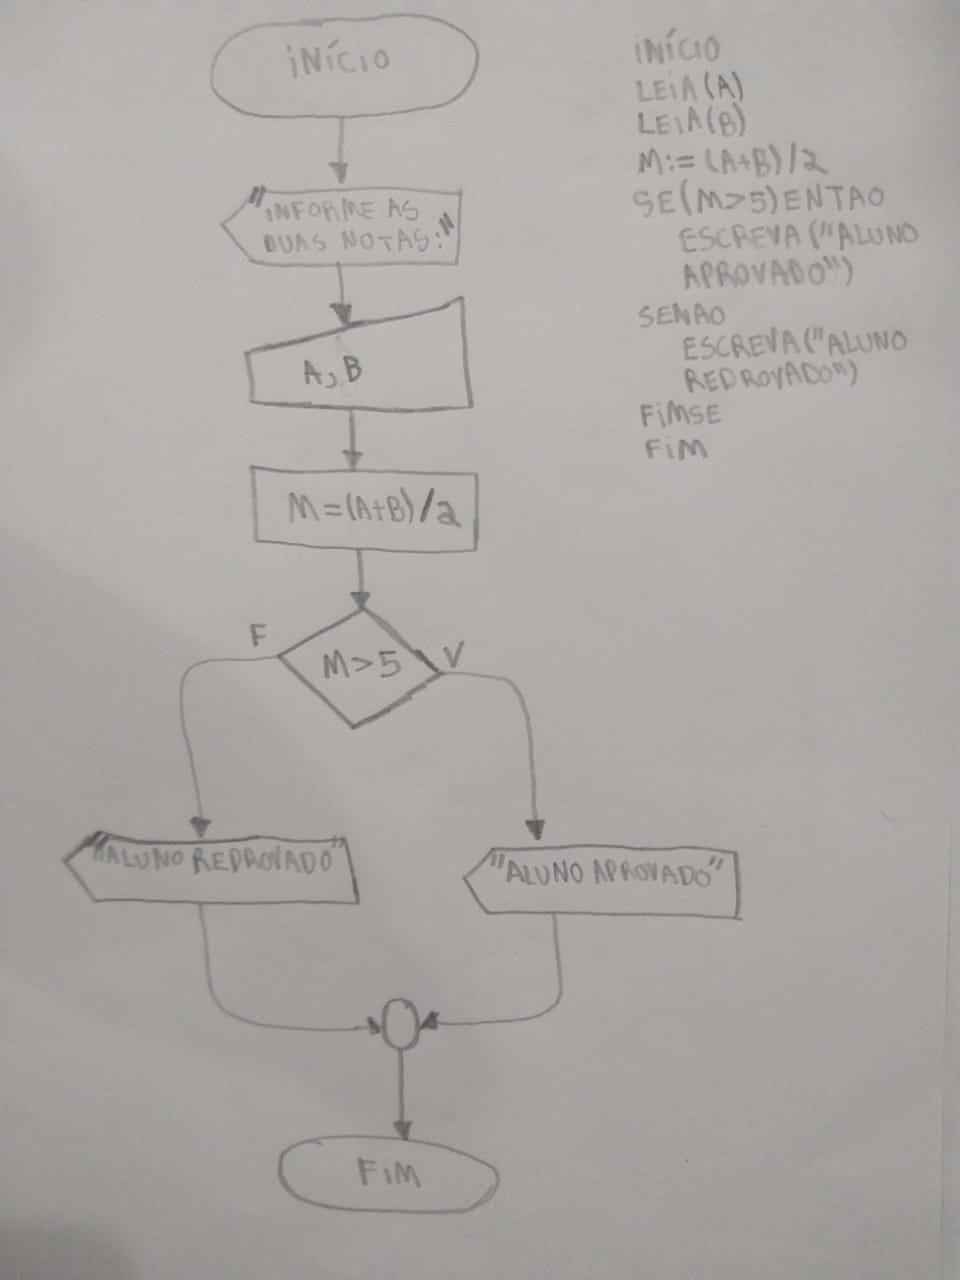 INÍCIO
"INFORME AS
DUAS NOTAS:"
A, B
M=(A+B)/2
F
M>5
V
"ALUNO REPROVADO"
"ALUNO APROVADO"
FIM
INÍCIO
LEIA(A)
LEIA(B)
M:= (A+B)/2
SE(M>5)ENTAO
ESCREVA("ALUNO
APROVADO")
SENAO
ESCREVA("ALUNO
REPROVADO")
FIMSE
FIM